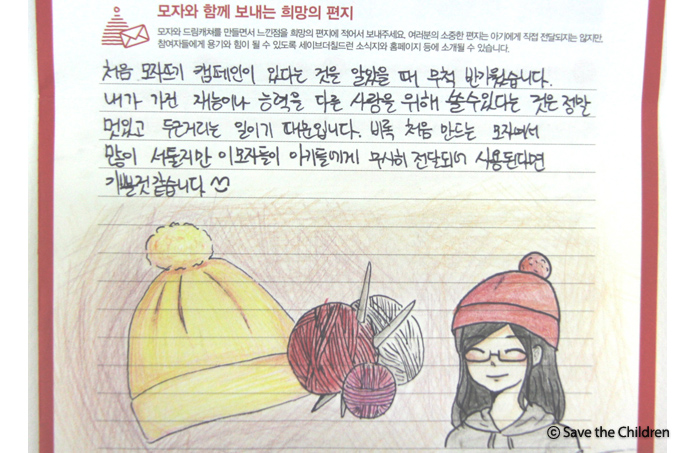 모자와 함께 보내는 희망의 편지
모자와 드림캐쳐를 만들면서 느낀점을 희망의 편지에 적어서 보내주세요. 여러분의 소중한 편지는 아기에게 직접 전달되지는 않지만,
참여자들에게 용기와 힘이 될 수 있도록 세이브더칠드런 소식지와 홈페이지 등에 소개될 수 있습니다.
처음 모자뜨기 캠페인이 있다는 것은 알았을 때 무척 반가웠습니다.
내가 가진 재능이나 능력을 다른 사람을 위해 쓸수있다는 것은 정말
멋있고 두근거리는 일이기 때문입니다. 비록 처음 만드는 모자여서
많이 서툴지만 이모자들이 아기들에게 무사히 전달되어 사용된다면
기쁠것 같습니다
© Save the Children